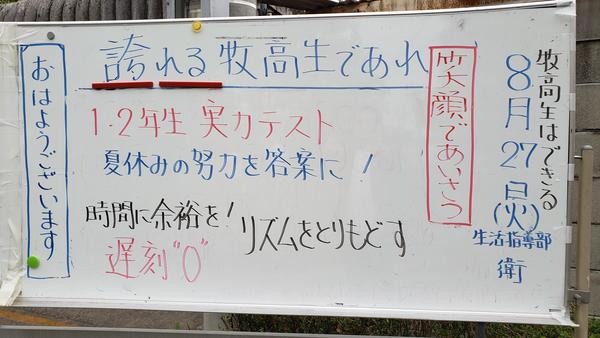 おはようございます
誇れる牧高生であれ
1・2年生 実力テスト
夏休みの努力を答案に!
時間に余裕を!
リズムをとりもどす
遅刻"0"
笑顔であいさつ
牧高生はできる
8月27日(火)
生活指導部
衛